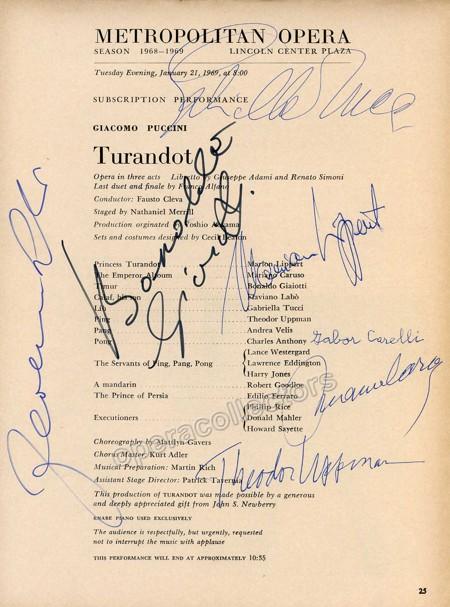 METROPOLITAN OPERA
SEASON 1968–1969 LINCOLN CENTER PLAZA
Tuesday Evening, January 21, 1969, at 8:00
SUBSCRIPTION PERFORMANCE
GIACOMO PUCCINI
Turandot
Opera in three acts Libretto by Giuseppe Adami and Renato Simoni
Last duet and finale by Franco Alfano
Conductor: Fausto Cleva
Staged by Nathaniel Merrill
Production originated by Yoshio Aoyama
Sets and costumes designed by Cecil Beaton
Princess Turandot Marion Lippert
The Emperor Altoum Mariano Caruso
Timur Bonaldo Giaiotti
Calaf, Flaviano Labò
Liù Gabriella Tucci
Ping Theodor Uppman
Pang Andrea Velis
Pong Charles Anthony
The Servants of Ping, Pang, Pong Lance Westergard
Lawrence Eddington
Harry Jones
A mandarin Robert Goodloe
The Prince of Persia Edilio Ferraro
Executioners Phillip Rice
Donald Mahler
Howard Sayette
Choreography by Mattlyn Gavers
Chorus Master: Kurt Adler
Musical Preparation: Martin Rich
Assistant Stage Director: Patrick Tavernia
This production of TURANDOT was made possible by a generous
and deeply appreciated gift from John S. Newberry
KNABE PIANO USED EXCLUSIVELY
The audience is respectfully, but urgently, requested
not to interrupt the music with applause
THIS PERFORMANCE WILL END AT APPROXIMATELY 10:55
25
Gabriella Tucci
Bonaldo Giaiotti
Marion Lippert
Gabor Carelli
Theodor Uppman
operacollectors